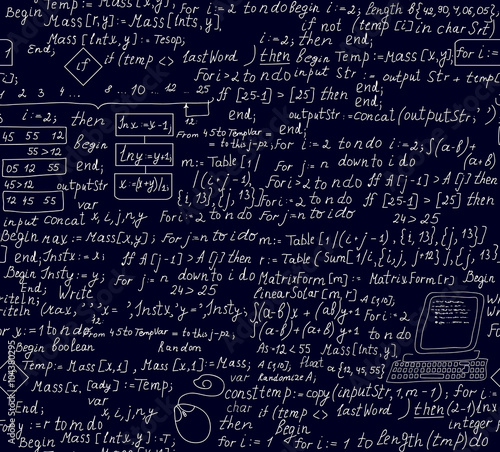 Begin Temp:= Mass[x,y]; For i:= 2 to ndo begin i:=2; Length b{42, 90, 4, 06, 05};
Mass[r,y]:= Mass[lnts,y]; if not (temp [i] in char SrT)
Mass [lntx,y]:= Tesop; i:=2; then end;
1 End; if if (temp <> lastWord ) then Begin Temp:= Mass[x,y] For i:=
For i:= 2 to ndo input Str := output Str + temp
1 2 3 4 ... 8 ... 10 ... 12 ... 25 if [25-1] > [25] then end;
end;
i:=2; then lnx:=x-1 12 end; outputStr:=concat(outputStr,' ')
45 55 12 From 45 to TempVar = end;
55>12 begin lny:=y+1; = to this j-p2; For i:= 2 to ndo i:=2; ∫(a-b)+
05 12 55 end; m:= Table [1/ For j:= n down to i do (a+b)
45>12 outputStr x:=(x+y)/1; /(i+j-1), For i:= 2 to ndo if A[j-1] > A[j] then
12 45 55 var {i, 13}, {j, 13}] For i:= 2 to ndo if [25-1] > [25] then
input concat x, i, j, n, y For i:= 2 to ndo For j:=n to i do 24>25
Begin max:= Mass[x,y]; For j:=n to i do m:= Table [1/(i+j-1), {i, 13}, {j, 13}]
] end; Instx:= x; if A[j-1] > A[j] then r:= Table [Sum[1/i, {i,j, j+12}], {j, 13}]
Begin Insty:= y; For j:= n down to i do Matrixform [m]:= MatrixForm [r] Begin
End; Write 24>25 LinearSolar [m, r]
riteln (max, ' 'x=', Instx,'y=', Insty; ∫(a-b)x + (ab) y+1 A [1,10],
∫(a-b) + (a+b) y+1 For i:= 2
or x:=1 to ndo From 45 to TempVar = to this j-p2; to ndo
Begin boolean Random As-12 < 55 Mass[lnts,y]
Temp:= Mass[x,1], Mass[x,1]:= Mass; A [1,10], Float a {12, 45, 55}
var Randomize A;
Mass[x, [ady]:= Temp; const temp:= copy (inputStr, 1, m-1); for i:=
End; var char if (temp <> lastWord ) then (2-1) ln x
x, i, j, y
y:= r to m do then Begin integer
Begin Mass [lntx,y]:= T; for i:= 1 for i:= 1 to Length (tmp) do